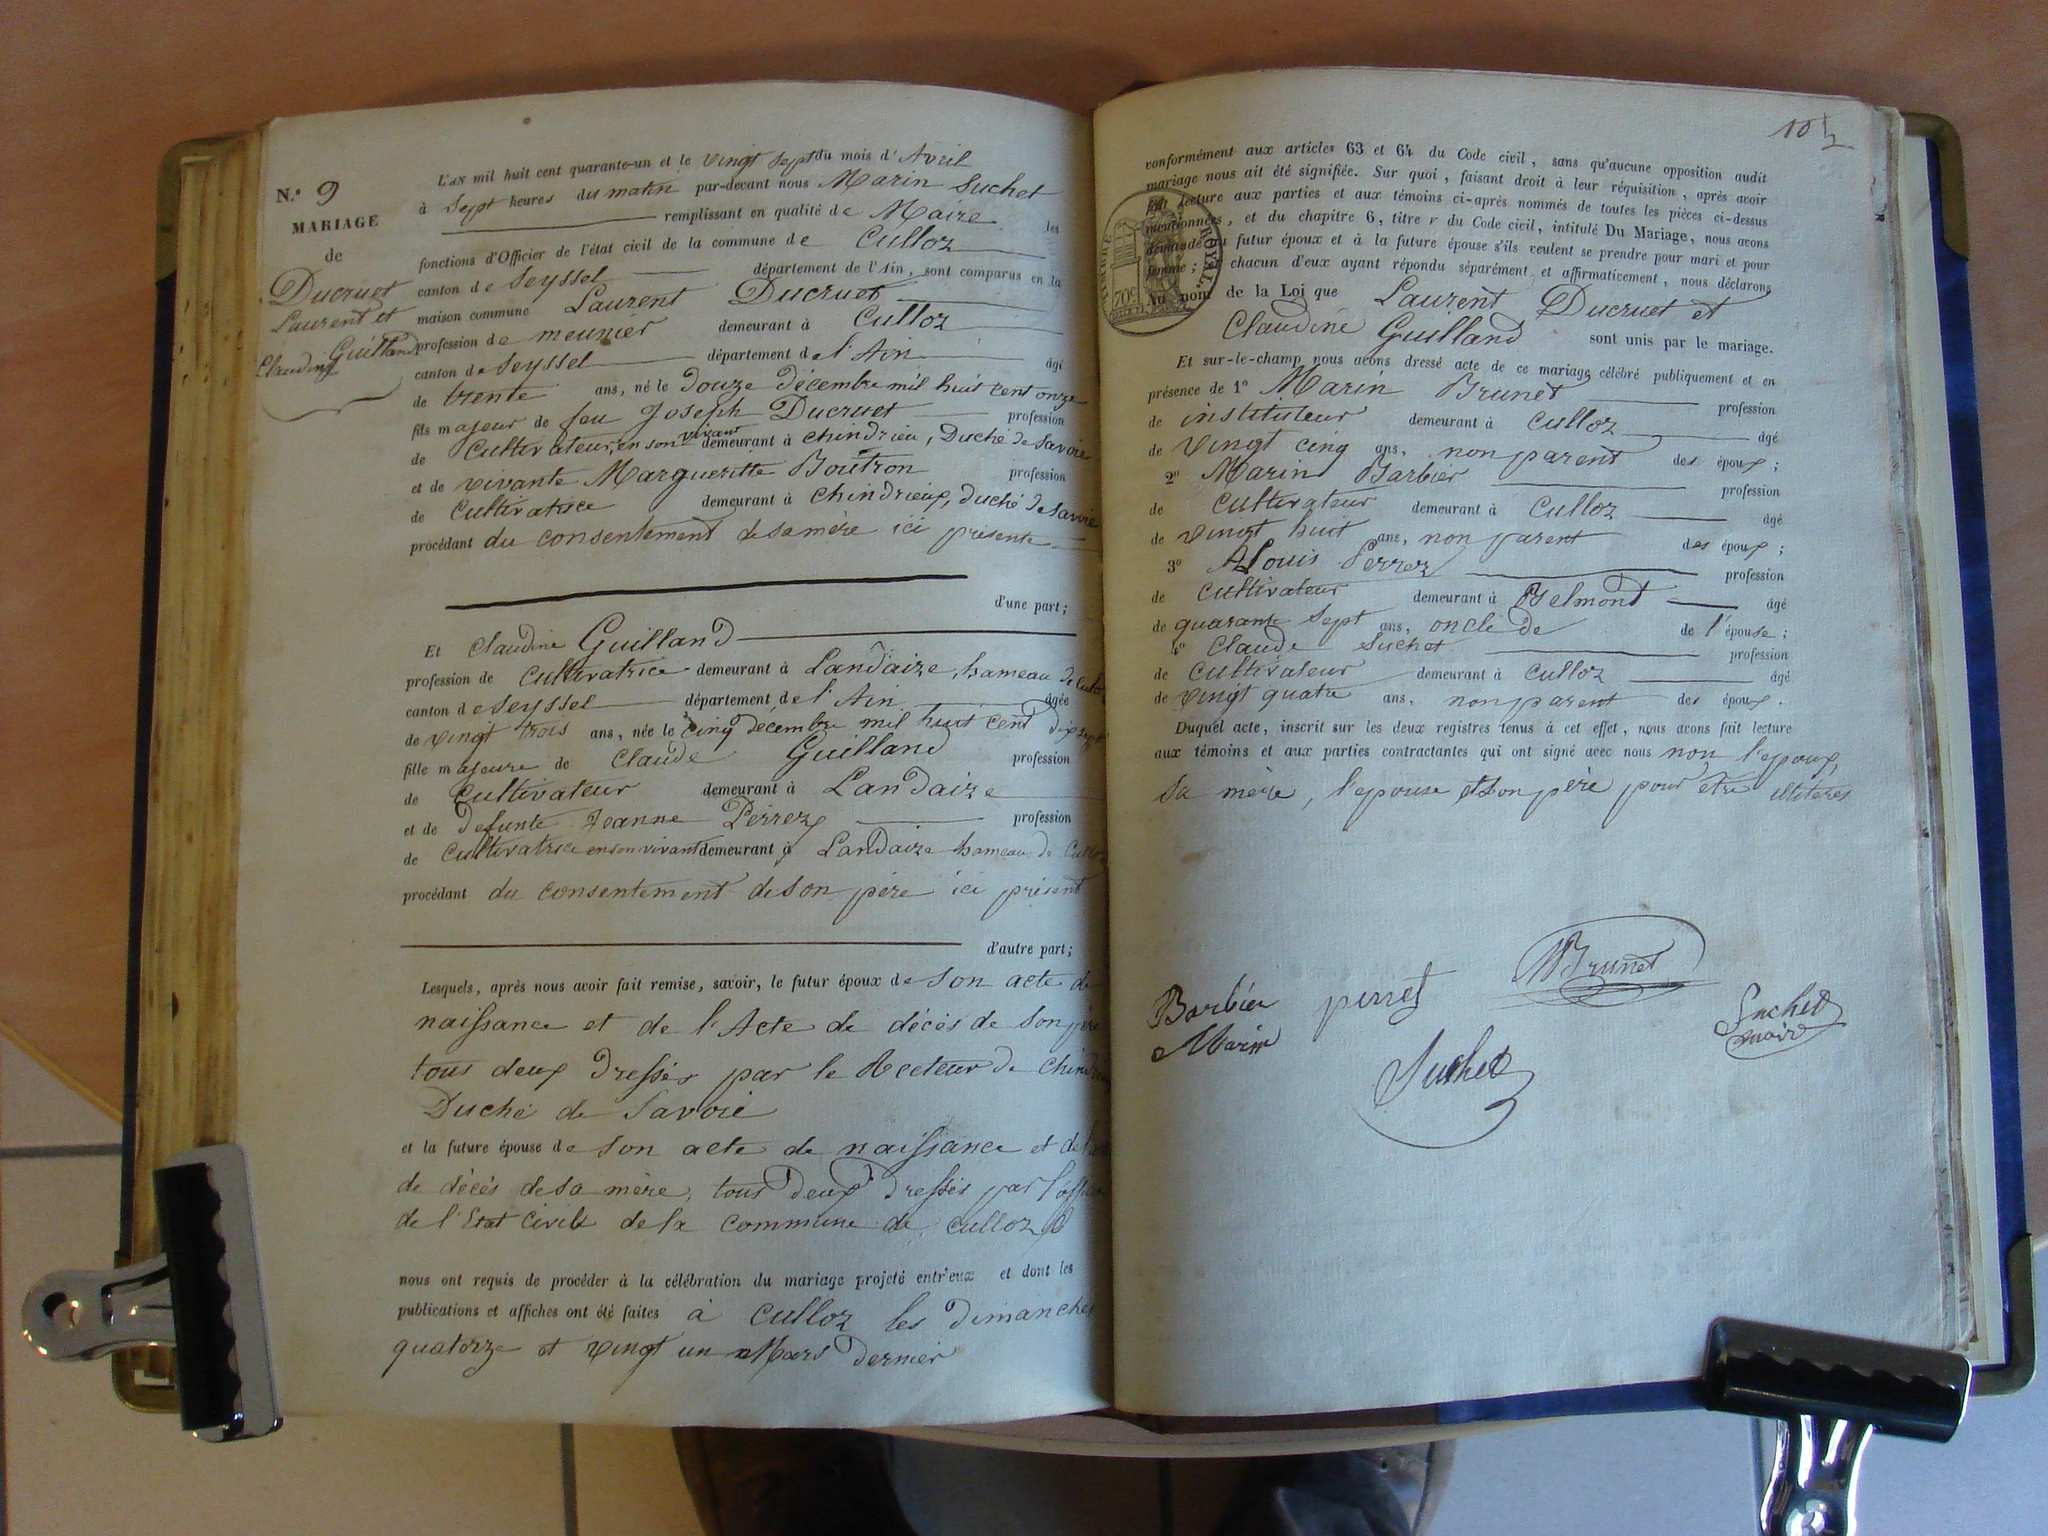 N.° 9
MARIAGE
de
Ducruet
Laurent et
Guilland
Claudine
L'AN mil huit cent quarante-un et le vingt sept du mois d'Avril
à sept heures du matin par-devant nous Marin Suchet
remplissant en qualité de Maire les
fonctions d'Officier de l'état civil de la commune de Culloz
canton de Seyssel département de l'Ain, sont comparus en la
maison commune Laurent Ducruet
profession de meunier demeurant à Culloz
canton de Seyssel département de l'Ain âgé
de trente ans, né le douze décembre mil huit cent onze
fils majeur de feu Joseph Ducruet profession
de Cultivateur, en son vivant demeurant à chindrieu, Duché de Savoie
et de vivante Margueritte Boutron profession
de Cultivatrice demeurant à Chindrieux, duché de Savoie
procédant du consentement de sa mère ici présente
d'une part;
Et Claudine Guilland
profession de Cultivatrice demeurant à Landaize, hameau de Culoz
canton de Seyssel département de l'Ain âgée
de vingt trois ans, née le cinq décembre mil huit cent dix sept
fille majeure de Claude Guilland profession
de Cultivateur demeurant à Landaize
et de defunte Jeanne Perrez profession
de Cultivatrice en son vivant demeurant à Landaize hameau de Culloz
procédant du consentement de son père ici présent
d'autre part;
Lesquels, après nous avoir fait remise, savoir, le futur époux de son acte de
naissance et de l'Acte de décès de son père
tous deux dressés par le Recteur de Chindrieu
Duché de Savoie
et la future épouse de son acte de naissance et de l'acte
de décès de sa mère, tous deux dressés par l'officier
de l'Etat Civil de la commune de Culloz
nous ont requis de procéder à la célébration du mariage projeté entr'eux et dont les
publications et affiches ont été faites à Culloz les dimanches
quatorze et vingt un Mars dernier
10
conformément aux articles 63 et 64 du Code civil, sans qu'aucune opposition audit
mariage nous ait été signifiée. Sur quoi, faisant droit à leur réquisition, après avoir
fait lecture aux parties et aux témoins ci-après nommés de toutes les pièces ci-dessus
mentionnées, et du chapitre 6, titre v du Code civil, intitulé Du Mariage, nous avons
demandé au futur époux et à la future épouse s'ils veulent se prendre pour mari et pour
femme; chacun d'eux ayant répondu séparément et affirmativement, nous déclarons
Au nom de la Loi que Laurent Ducruet et
Claudine Guilland sont unis par le mariage.
TIMBRE ROYAL
70c
Et sur-le-champ nous avons dressé acte de ce mariage célébré publiquement et en
présence de 1° Marin Brunet profession
de instituteur demeurant à Culloz âgé
de vingt cinq ans, non parent des époux;
2° Marin Barbier profession
de Cultivateur demeurant à Culloz âgé
de vingt huit ans, non parent des époux;
3° Louis Perrez profession
de Cultivateur demeurant à Belmond âgé
de quarante sept ans, oncle de de l'épouse;
4° Claude Suchet profession
de Cultivateur demeurant à Culloz âgé
de vingt quatre ans, non parent des époux.
Duquel acte, inscrit sur les deux registres tenus à cet effet, nous avons fait lecture
aux témoins et aux parties contractantes qui ont signé avec nous non l'époux,
sa mère, l'épouse et son père pour être illiterés
Brunet
Barbier perret
Marin
Suchet
maire
Suchet